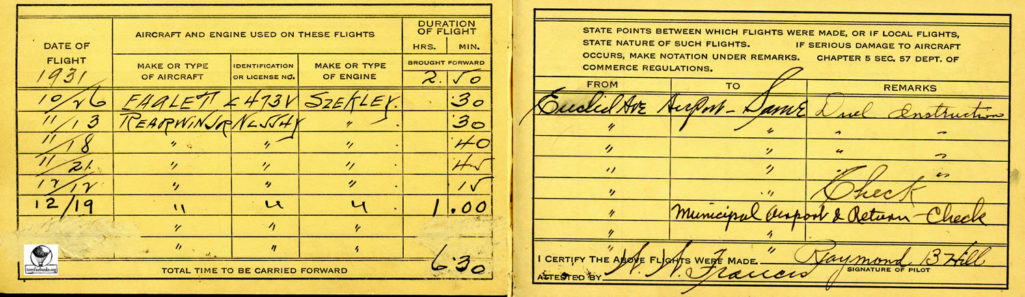 DURATION OF FLIGHT
AIRCRAFT AND ENGINE USED ON THESE FLIGHTS
DATE OF FLIGHT
HRS. MIN.
MAKE OR TYPE OF AIRCRAFT
IDENTIFICATION OR LICENSE NO.
MAKE OR TYPE OF ENGINE
BROUGHT FORWARD
1931 2.50
10/26 EAGLET 473V SZEKLEY. .30
11/13 REARWIN JR " .30
11/18 " " " .40
11/21 " " " .45
12/12 " " " .15
12/19 " " " 1.00
" "
" "
TOTAL TIME TO BE CARRIED FORWARD 6.30
STATE POINTS BETWEEN WHICH FLIGHTS WERE MADE, OR IF LOCAL FLIGHTS,
STATE NATURE OF SUCH FLIGHTS. IF SERIOUS DAMAGE TO AIRCRAFT
OCCURS, MAKE NOTATION UNDER REMARKS. CHAPTER 5 SEC. 57 DEPT. OF
COMMERCE REGULATIONS.
FROM TO REMARKS
Euclid Ave Airport - Same Duel Instruction
" " " "
" " " "
" " "
" " Check
" Municipal Airport & Return - Check
" "
I CERTIFY THE ABOVE FLIGHTS WERE MADE. Raymond B Hill
SIGNATURE OF PILOT
ATTESTED BY W. W. Francis